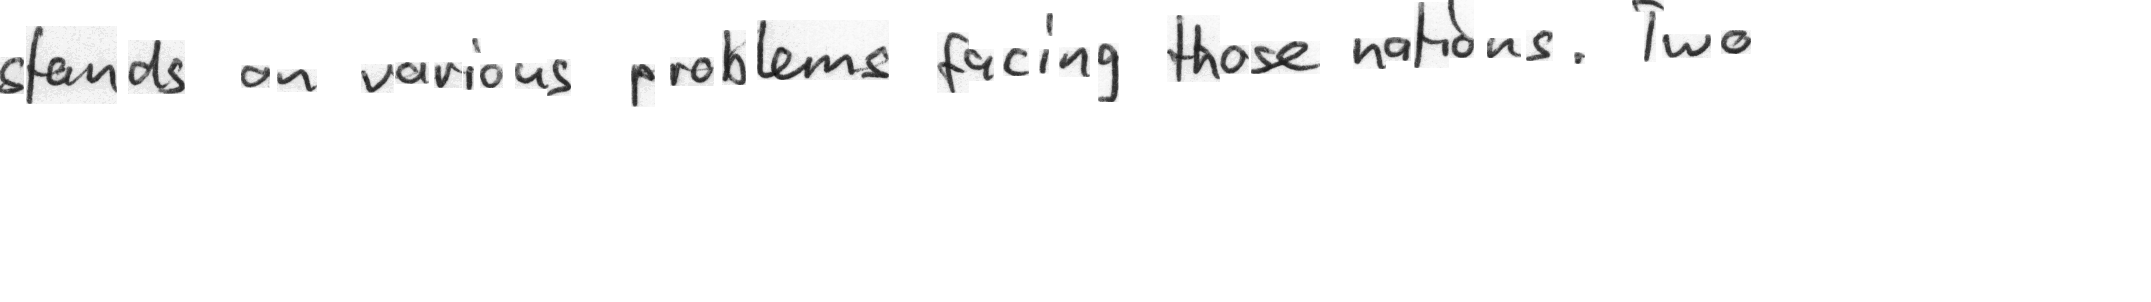 stands on various problems facing those nations. Two